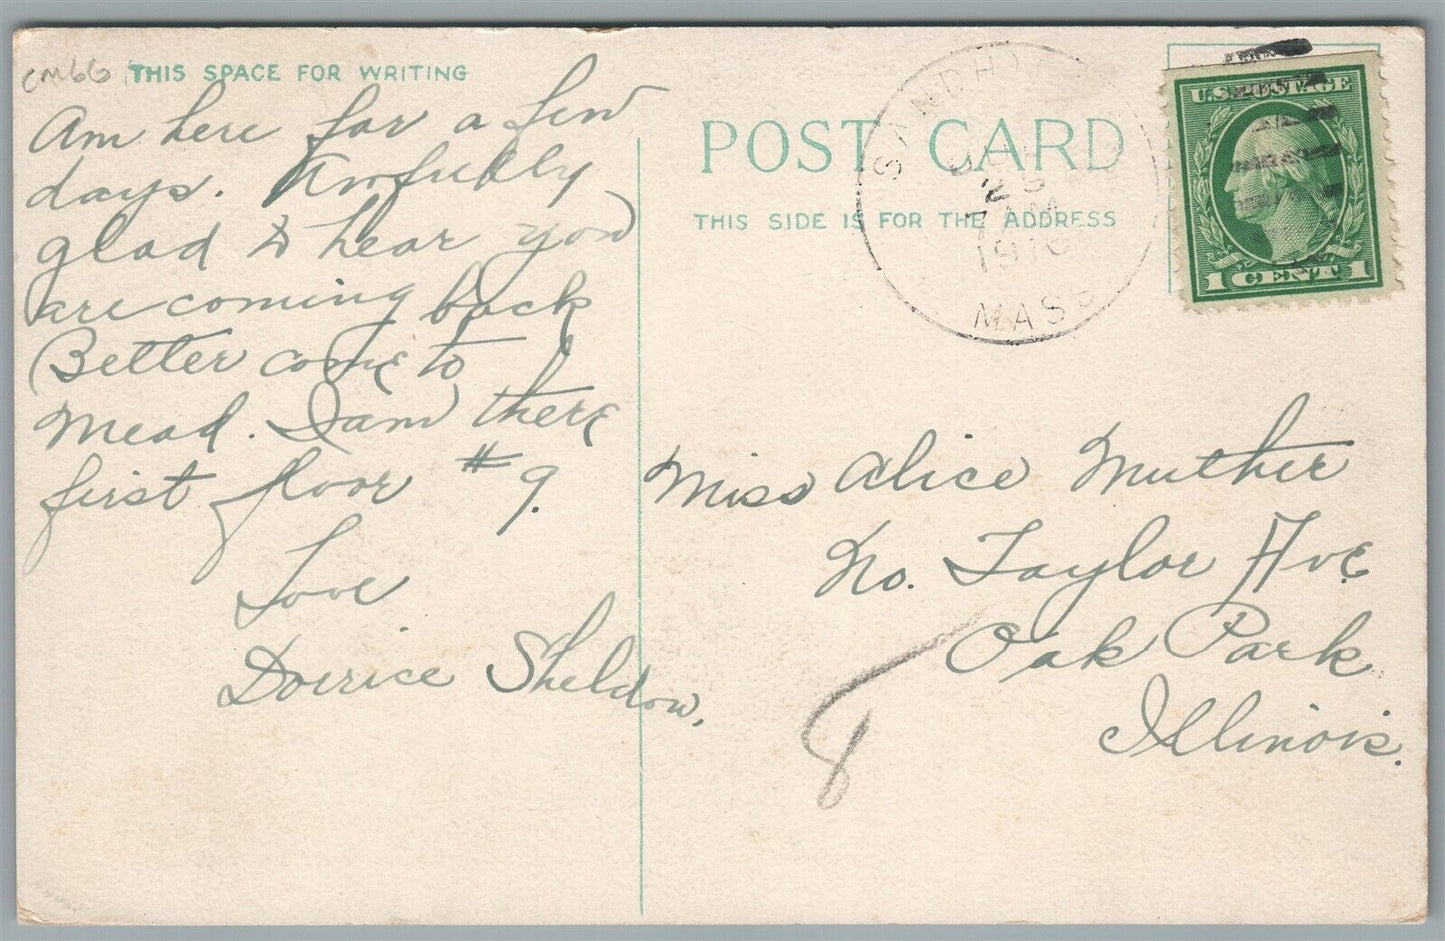 cm66
THIS SPACE FOR WRITING
Am here for a few
days. Awfully
glad to hear you
are coming back
Better come to
Mead. I am there
first floor #9.
Love
Dorrice Sheldon,
POST CARD
THIS SIDE IS FOR THE ADDRESS
SANDH
25
7 AM
191
MASS
U.S. POSTAGE
1 CENT 1
Miss Alice Muther
No. Taylor Ave
Oak Park
Illinois.
8